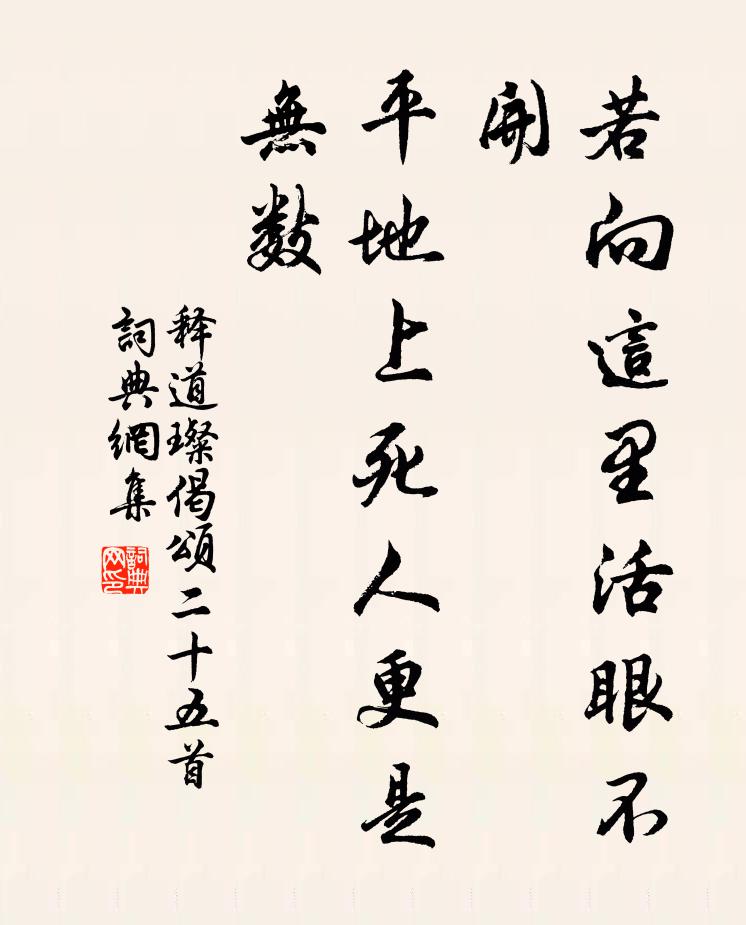 若向這里活眼不
開
平地上死人更是
無數
释道璨偈頌二十五首
詞典網集
詞典网印